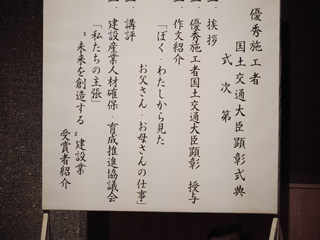 優秀施工者
国土交通大臣顕彰式典
式次第
一．挨拶
一．優秀施工者国土交通大臣顕彰 授与
一．作文紹介
「ぼく・わたしから見た
お父さん・お母さんの仕事」
一．講評
一．建設産業人材確保・育成推進協議会
「私たちの主張」
〝未来を創造する〟建設業
受賞者紹介